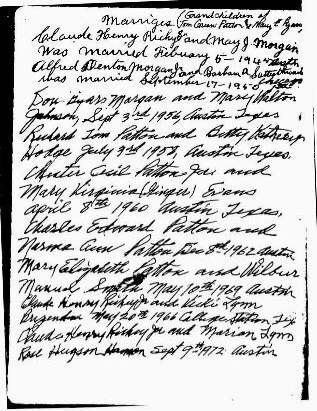 Marriges (Grandchildren of
Tom Green Patton & Mary E. Byars,
Claude Henry Rickey and May J. Morgan
was married Febuary 5 - 1944 Austin
Alfred Denton Morgan Jr and Barbara A.
was married September - 17 - 1950
Don Byars Morgan and Mary Walton
Johnson, Sept 3rd 1956, Austin Texas
Richard Tom Patton and Betty
Hodge July 3rd 1958, Austin Texas,
Chester Cecil Patton Jr and
Mary Virginia (Ginger) Evans
April 8th 1960 Austin Texas,
Charles Edward Patton and
Norma Ann Patton Dec 8th 1962 Austin
Mary Elizabeth Patton and Wilbur
Manuel Smith May 10th 1969 Austin
Claude Henry Rickey Jr and Vicki Lynn
May 20th 1966 College Station Tex
Claude Henry Rickey Jr and Marian Lynn
Rose Sept 9th 1972 Austin